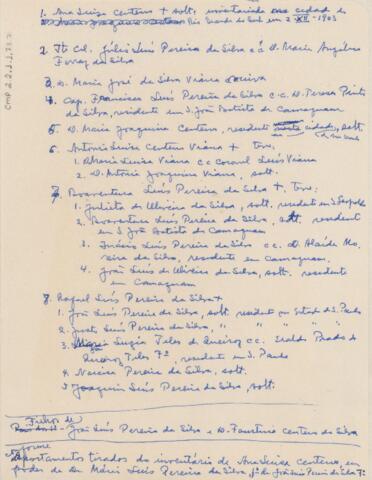 1. Ana Luisa Centeno + solt. inventariada na cidade do
Rio Grande do Sul em 2 XII - 1903
2. Tte Cel. Júlio Luís Pereira da Silva c.c. D. Maria Angelina
Ferraz da Silva
3. D. Maria José da Silva Viana viuva
4. Cap. Francisco Luís Pereira da Silva c.c. D. Teresa Pinto
da Silva, residente em S. João Batista de Camaquam
5. D. Maria Joaquina Centeno, residente nesta cidade, solt.
6. Antonia Luisa Centeno Viana + Teve,
1. Maria Luisa Viana c.c. Coronel Luís Viana
2. D. Antônia Joaquina Viana, solt.
7. Boaventura Luís Pereira da Silva +, Teve:
1. Julieta de Oliveira da Silva, solt. residente em S. Leopoldo
2. Boaventura Luís Pereira da Silva, solt. residente
em S. João Batista de Camaquam
3. Inácio Luís Pereira da Silva c.c. D. Alaíde Mo
reira da Silva, residente em Camaquam.
4. João Luís de Oliveira da Silva, solt. residente
em Camaquam
8. Rafael Luís Pereira da Silva +
1. José Luís Pereira da Silva, solt. residente no Estado de S. Paulo
2. Luís Pereira da Silva, " " "
3. Luzia Teles de Queiroz c.c. Prado de
Queiroz Teles Fº, residente em S. Paulo
4. Narcisa Pereira da Silva, solt.
5 Joaquim Luís Pereira da Silva, solt.
Filhos de
João Luís Pereira da Silva e D. Faustina Centeno da Silva
conforme
apontamentos tirados do inventário de Ana Luisa Centeno, em
poder de Dr. Mário Luís Pereira da Silva